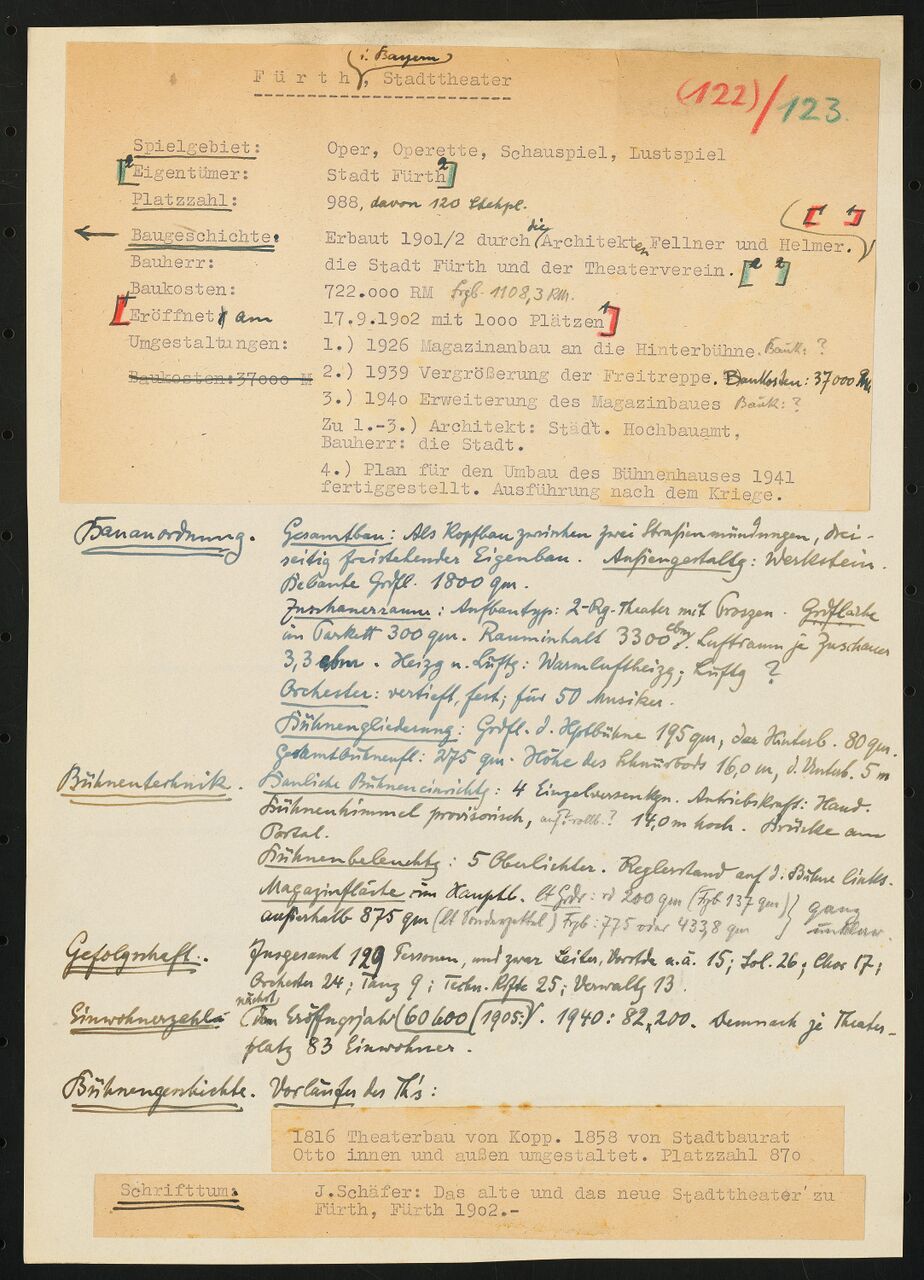 i. Bayern
Fürth, Stadttheater
(122)/123.
Spielgebiet: Oper, Operette, Schauspiel, Lustspiel
[2 Eigentümer: Stadt Fürth 2]
Platzzahl: 988, davon 120 Stehpl.
[1 1]
← Baugeschichte: Erbaut 19o1/2 durch die Architekten Fellner und Helmer.
Bauherr: die Stadt Fürth und der Theaterverein. [2 2]
Baukosten: 722.ooo RM Frgb. 1108,3 RM.
[1 Eröffnet am 17.9.19o2 mit looo Plätzen 1]
Umgestaltungen: 1.) 1926 Magazinanbau an die Hinterbühne. Bauk: ?
Baukosten:37ooo M 2.) 1939 Vergrößerung der Freitreppe. Baukosten: 37000 RM
3.) 194o Erweiterung des Magazinbaues Bauk: ?
Zu 1.-3.) Architekt: Städt. Hochbauamt,
Bauherr: die Stadt.
4.) Plan für den Umbau des Bühnenhauses 1941
fertiggestellt. Ausführung nach dem Kriege.
Bauanordnung. Gesamtbau: Als Kopfbau zwischen zwei Straßenmündungen, drei-
seitig freistehender Eigenbau. Außengestaltg: Werkstein.
Bebaute Grdfl. 1800 qm.
Zuschauerraum: Aufbautyp: 2-Rg-Theater mit Proszen. Grdfläche
im Parkett 300 qm. Rauminhalt 3300 cbm. Luftraum je Zuschauer
3,3 cbm. Heizg u. Lüftg: Warmluftheizg; Lüftg ?
Orchester: vertieft, fest; für 50 Musiker.
Bühnengliederung: Grdfl. d. Hptbühne 195 qm, der Hinterb. 80 qm.
Gesamtbühnenfl: 275 qm. Höhe des Schnürbods 16,0 m, d. Unterb. 5 m
Bühnentechnik. Bauliche Bühneneinrichtg: 4 Einzelversenkgn. Antriebskraft: Hand.
Bühnenhimmel provisorisch, aufrollb.? 14,0 m hoch. Brücke am
Portal.
Bühnenbeleuchtg: 5 Oberlichter. Reglerstand auf d. Bühne links.
Magazinfläche im Hauptb. lt Grdr: rd 200 qm (Frgb 137 qm) } ganz
außerhalb 875 qm (lt Sonderzettel) Frgb: 775 oder 433,8 qm } unklar
Gefolgschaft. Insgesamt 129 Personen, und zwar Leiter, Vorstde u.ä. 15; Sol. 26; Chor 17;
Orchester 24; Tanz 9; Techn. Kräfte 25; Verwaltg 13.
Einwohnerzahl: (Dem nächst Eröffngsjahr) 60600 (1905). 1940: 82,200. Demnach je Theater-
platz 83 Einwohner.
Bühnengeschichte. Vorläufer des Th's:
1816 Theaterbau von Kopp. 1858 von Stadtbaurat
Otto innen und außen umgestaltet. Platzzahl 87o
Schrifttum: J.Schäfer: Das alte und das neue Stadttheater zu
Fürth, Fürth 19o2.-